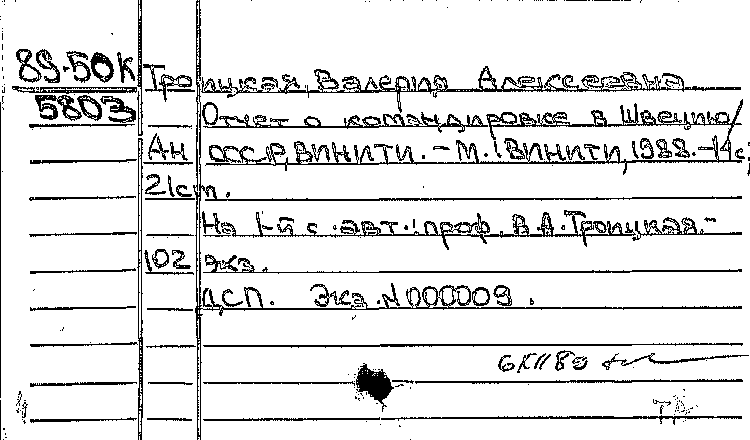 89-50К Троицкая, Валерия Алексеевна
5803 Отчет о командировке в Швецию/
АН СССР, ВИНИТИ. - М.: ВИНИТИ, 1988. - 14 с;
21 cm.
На 1-й с. авт.: проф. В.А. Троицкая. -
102 экз.
ДСП. Экз. N 000009.